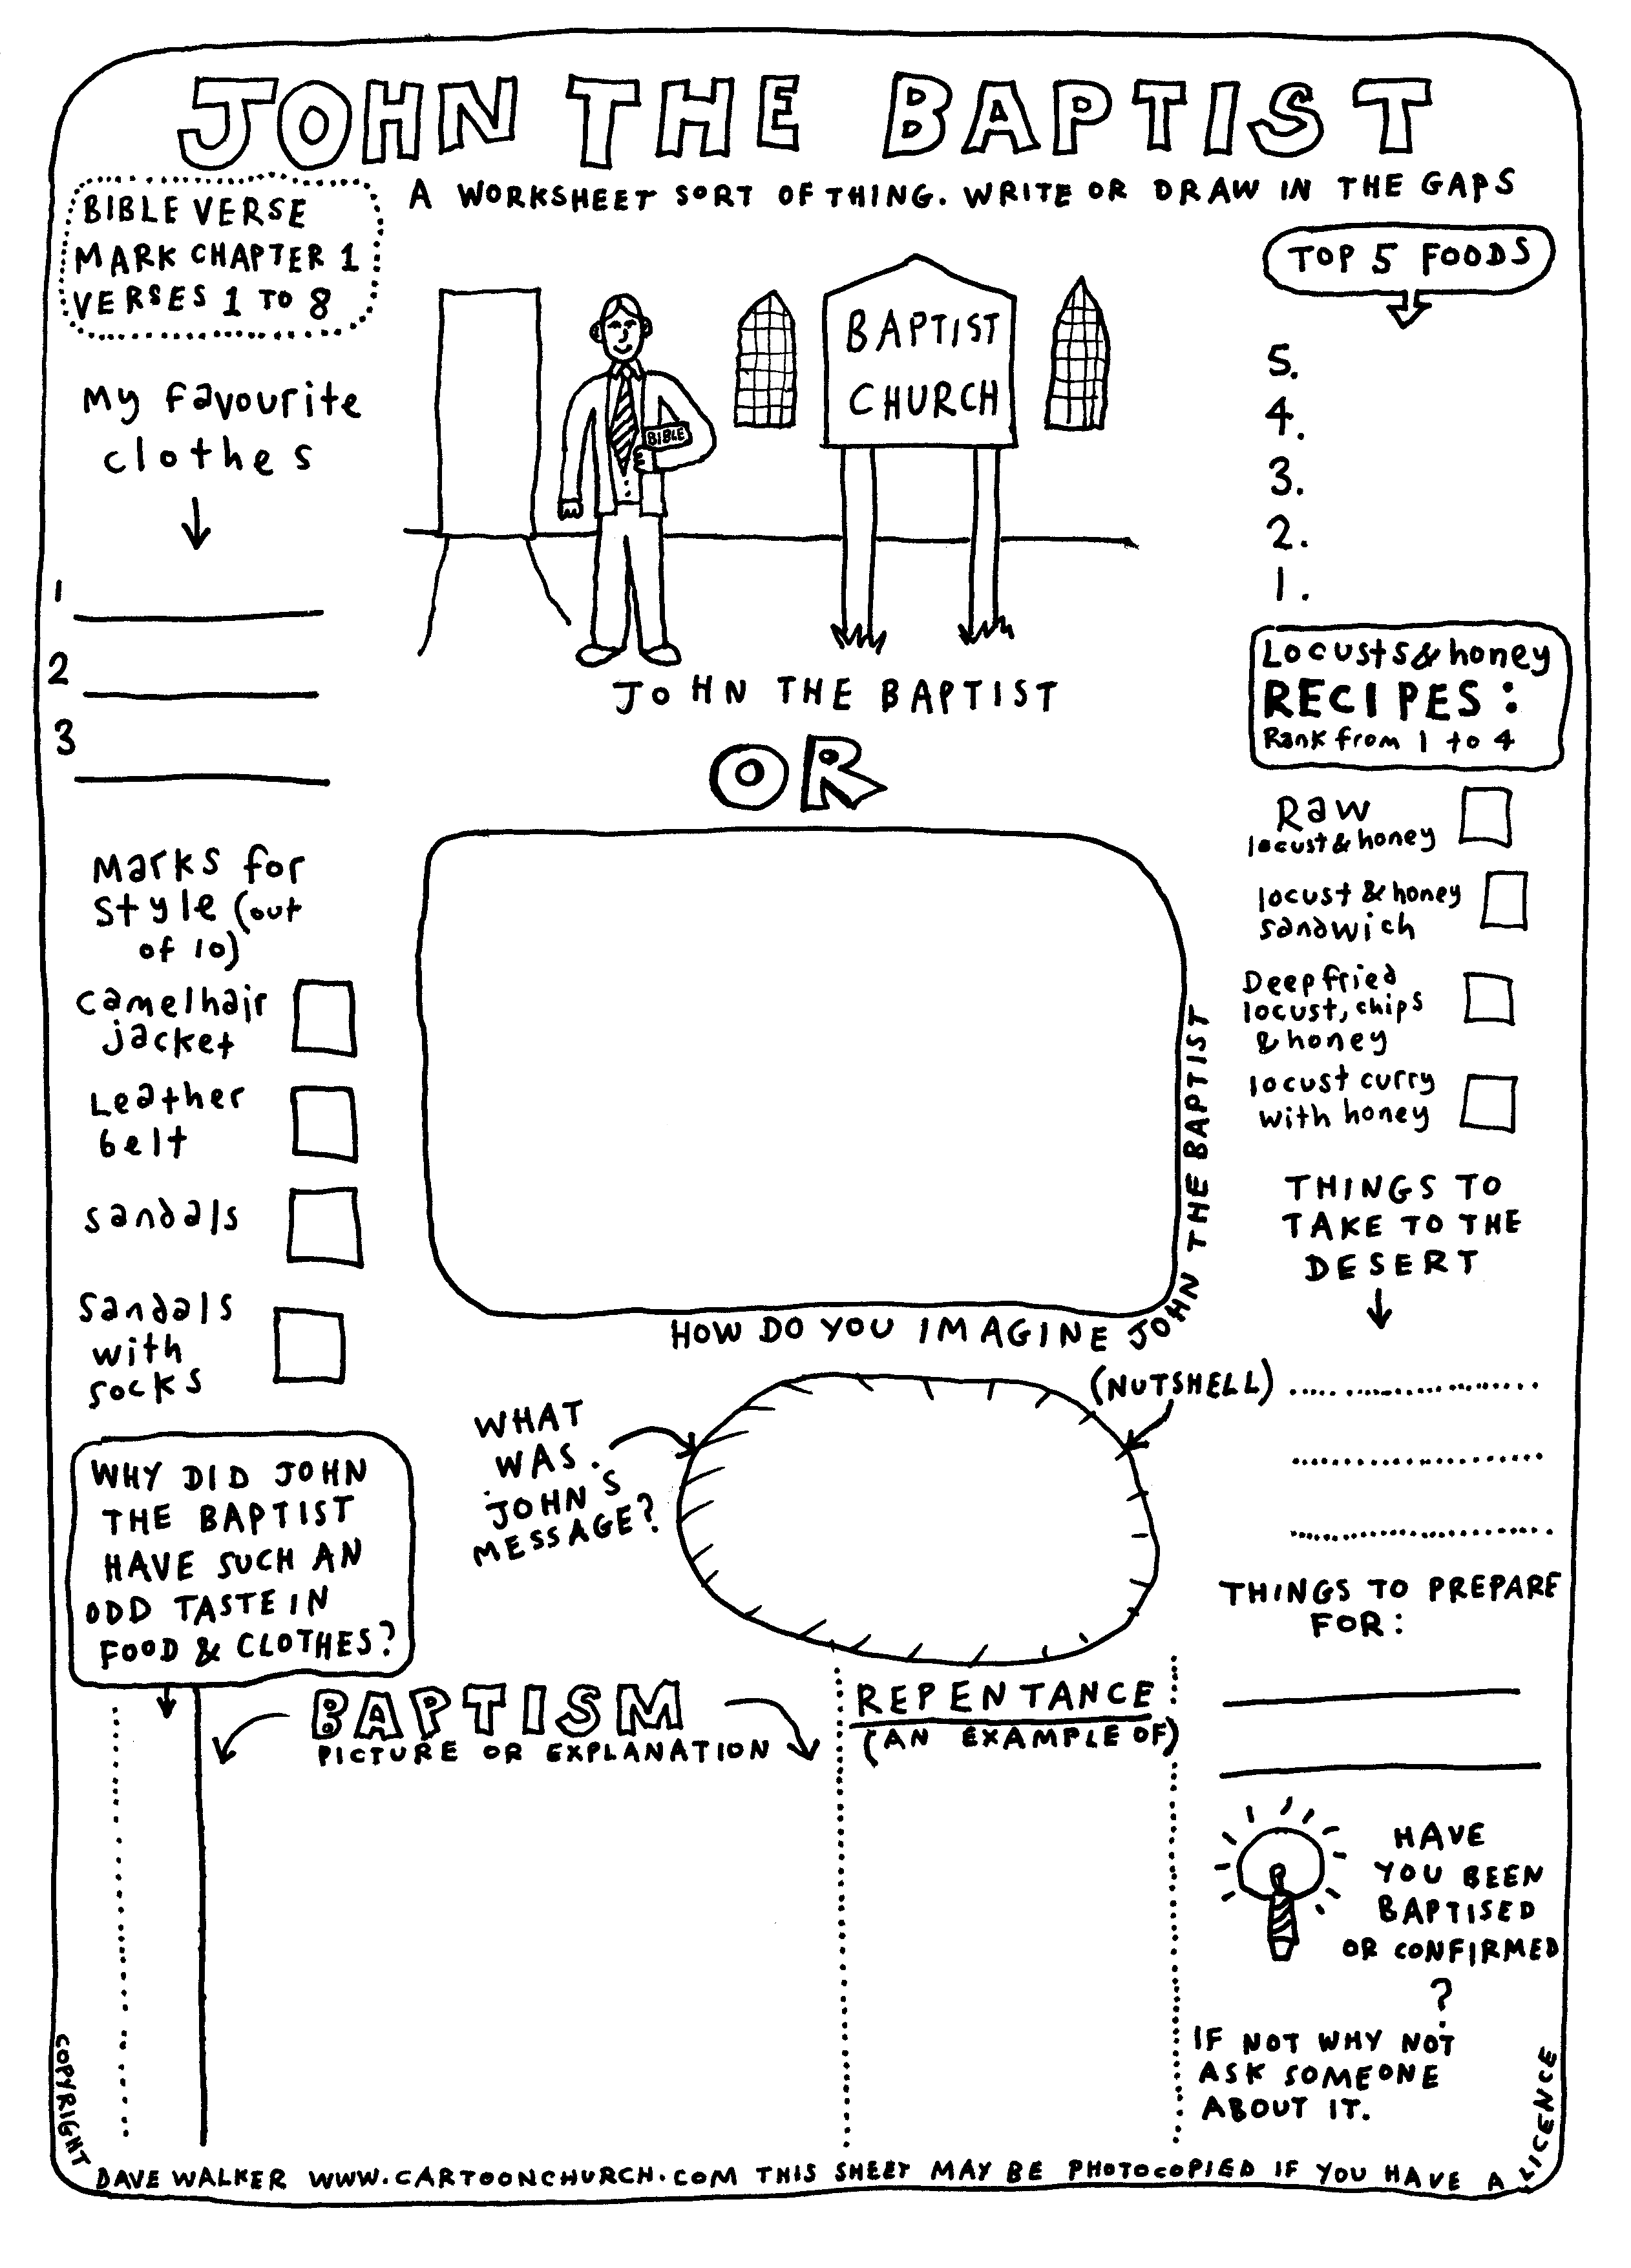 JOHN THE BAPTIST
A WORKSHEET SORT OF THING. WRITE OR DRAW IN THE GAPS
BIBLE VERSE
MARK CHAPTER 1
VERSES 1 TO 8
My favourite
clothes
1
2
3
Marks for
style (out
of 10)
camelhair
jacket
Leather
belt
sandals
Sandals
with
socks
WHY DID JOHN
THE BAPTIST
HAVE SUCH AN
ODD TASTE IN
FOOD & CLOTHES?
BIBLE
BAPTIST
CHURCH
JOHN THE BAPTIST
OR
HOW DO YOU IMAGINE JOHN THE BAPTIST
WHAT
WAS
JOHNS
MESSAGE?
(NUTSHELL)
BAPTISM
PICTURE OR EXPLANATION
REPENTANCE
(AN EXAMPLE OF)
TOP 5 FOODS
5.
4.
3.
2.
1.
Locusts & honey
RECIPES:
Rank from 1 to 4
Raw
locust & honey
locust & honey
sandwich
Deep fried
locust, chips
& honey
locust curry
with honey
THINGS TO
TAKE TO THE
DESERT
THINGS TO PREPARE
FOR:
HAVE
YOU BEEN
BAPTISED
OR CONFIRMED
?
IF NOT WHY NOT
ASK SOMEONE
ABOUT IT.
COPYRIGHT DAVE WALKER WWW.CARTOONCHURCH.COM THIS SHEET MAY BE PHOTOCOPIED IF YOU HAVE A LICENCE